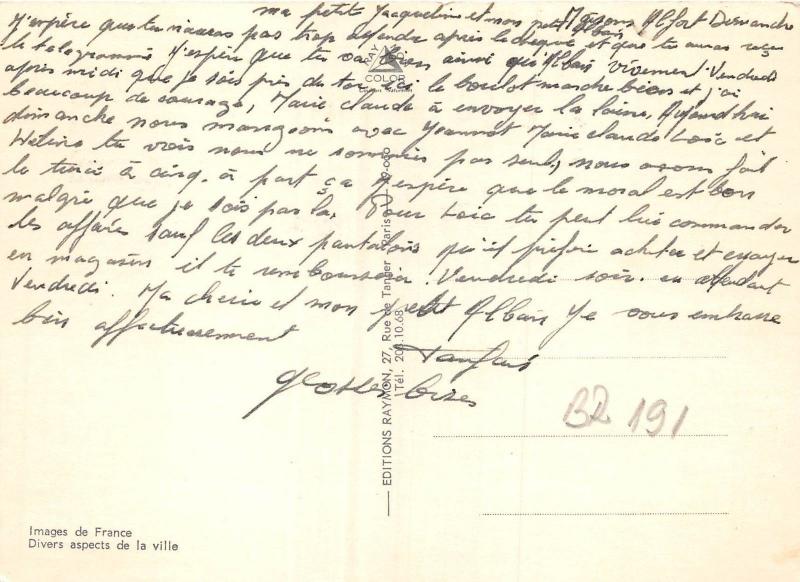 Maisons Alfort Dimanche
ma petite Jacqueline et mon petit Alban
J'espère que tu n'auras pas trop attendre après le chèque et que tu auras reçu
le telegramme J'espère que tu vas bien ainsi qu'Alban vivement Vendredi
après midi que je sois près de toi ici le boulot marche bien et j'ai
beaucoup de courage, Marie Claude à envoyer la laine, Aujourd'hui
dimanche nous mangeons avec Jeannot Marie Claude Loïc et
tu vois nous ne sommes pas seul, nous avons fait
le tiercé à cinq. à part ça j'espère que le moral est bon
malgré que je sois pas là. Pour Loïc tu peut lui commander
les affaires sauf les deux pantalons qu'il préfère acheter et essayer
en magasin il te remboursera Vendredi soir. en attendant
Vendredi. Ma cherie et mon petit Alban Je vous embrasse
bien affectueusement
Grosses bises
RAY
COLOR
EDITIONS RAYMON, 27, Rue de Tanger - Paris
Tél. 208.10.68
BR 191
Images de France
Divers aspects de la ville